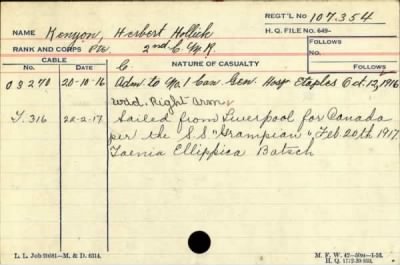 REGT'L No 107.354
NAME Kenyon, Herbert Hollick H. Q. FILE No. 649-
RANK AND CORPS Pte. 2nd C.M.R. FOLLOWS No.
CABLE NATURE OF CASUALTY FOLLOWS
No. DATE C.
03270 20-10-16 Adm. to No. 1 Can. Gen. Hosp Etaples Oct. 12, 1916
wd. Right Arm.
T. 316 20-2-17 Sailed from Liverpool for Canada
per the S.S "Grampian" Feb 20th 1917
Taenia Ellippica Batsch
L. L. Job 29681—M. & D. 6214. M. F. W. 42
H. Q. 1772-39-893.